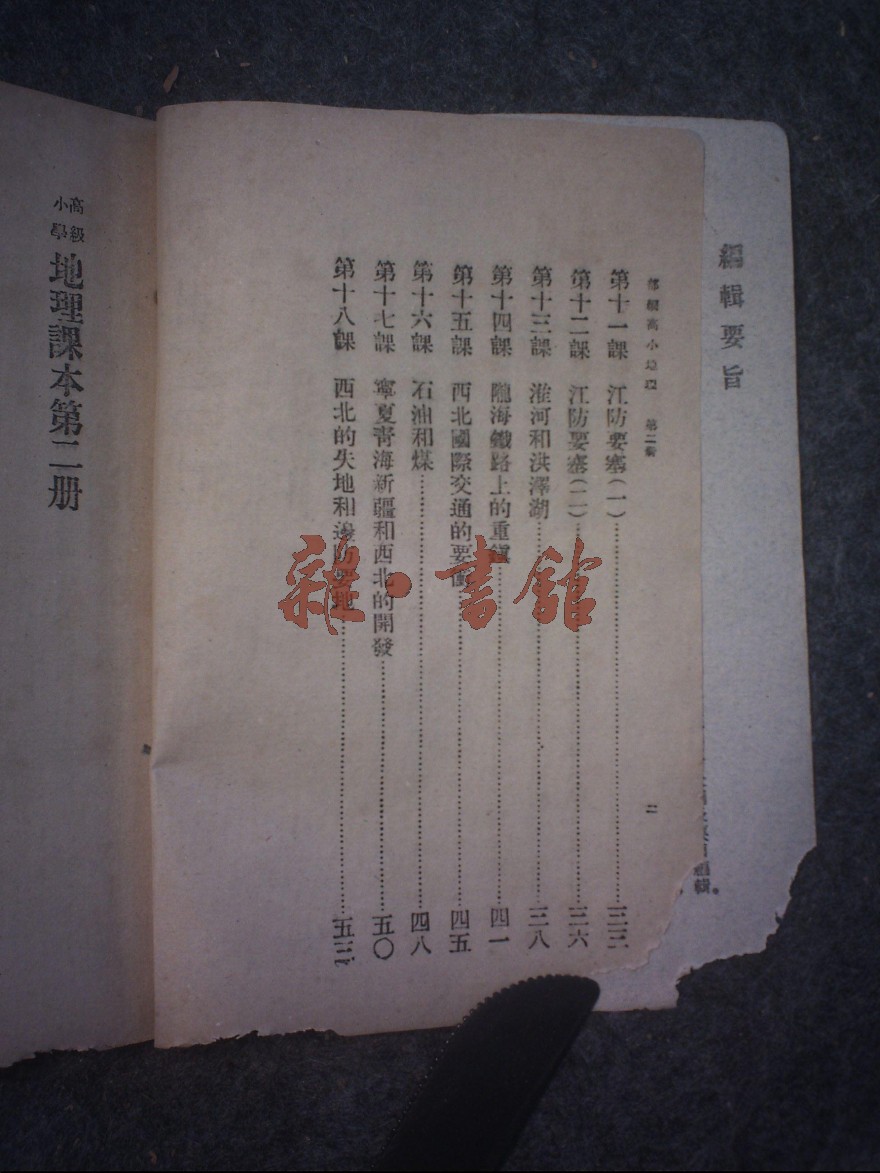 編輯要旨
編輯。
部編高小地理 第二冊
二
第十一課 江防要塞(一)……三三
第十二課 江防要塞(二)……三六
第十三課 淮河和洪澤湖……三八
第十四課 隴海鐵路上的重鎮……四一
第十五課 西北國際交通的要衝……四五
第十六課 石油和煤……四八
第十七課 寧夏青海新疆和西北的開發……五〇
第十八課 西北的失地和邊防要地……五三
高級小學 地理課本第二册
雜·書館